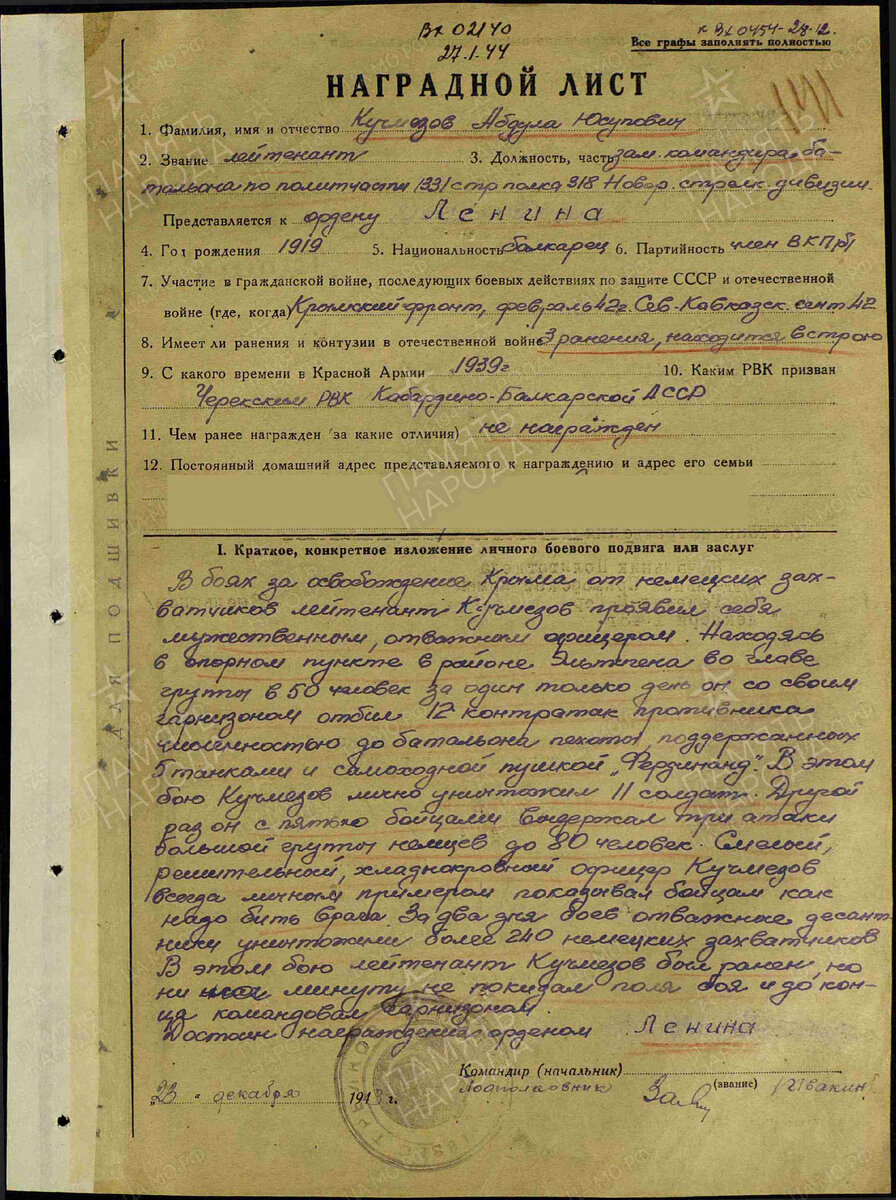 Вх 02140
27.1.44
к Вх 0454-28.12.
Все графы заполнять полностью
НАГРАДНОЙ ЛИСТ
1. Фамилия, имя и отчество Кучмезов Абдула Юсупович
2. Звание лейтенант 3. Должность, часть зам. командира ба-
тальона по политчасти 1331 стр полка 318 Новор. стрелк. дивизии
Представляется к ордену Ленина
4. Год рождения 1919 5. Национальность балкарец 6. Партийность член ВКП(б)
7. Участие в гражданской войне, последующих боевых действиях по защите СССР и отечественной
войне (где, когда) Крымский фронт, февраль 42г. Сев-Кавказск. сент 42
8. Имеет ли ранения и контузии в отечественной войне 3 ранения, находится в строю
9. С какого времени в Красной Армии 1939г 10. Каким РВК призван
Черекским РВК Кабардино-Балкарской АССР
11. Чем ранее награжден (за какие отличия) не награжден
12. Постоянный домашний адрес представляемого к награждению и адрес его семьи
ДЛЯ ПОДШИВКИ
I. Краткое, конкретное изложение личного боевого подвига или заслуг
В боях за освобождение Крыма от немецких зах-
ватчиков лейтенант Кучмезов проявил себя
мужественным, отважным офицером. Находясь
в опорном пункте в районе Эльтигена во главе
группы в 50 человек за один только день он со своим
гарнизоном отбил 12 контратак противника
численностью до батальона пехоты поддержанных
5 танками и самоходной пушкой „Фердинанд". В этом
бою Кучмезов лично уничтожил 11 солдат. Другой
раз он с пятью бойцами выдержал три атаки
большой группы немцев до 80 человек. Смелый,
решительный, хладнокровный офицер Кучмезов
всегда личным примером показывал бойцам как
надо бить врага. За два дня боев отважные десант-
ники уничтожили более 240 немецких захватчиков
В этом бою лейтенант Кучмезов был ранен, но
ни минуту не покидал поля боя и до кон-
ца командовал гарнизоном.
Достоин награждения орденом Ленина
Командир (начальник)
Подполковник (звание) (Ивакин)
„23" декабря 1943 г.
ПАМЯТЬ НАРОДА
ПАМО.РФ